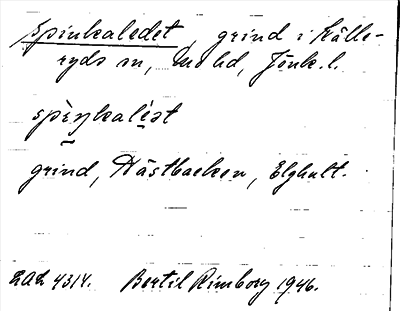 Spinkaledet, grind i Källe-
ryds sn, Mo hd, Jönk. l.
spìŋkalét
grind, Hästbacken, Elghult.
LAL 4314. Bertil Rimborg 1946.